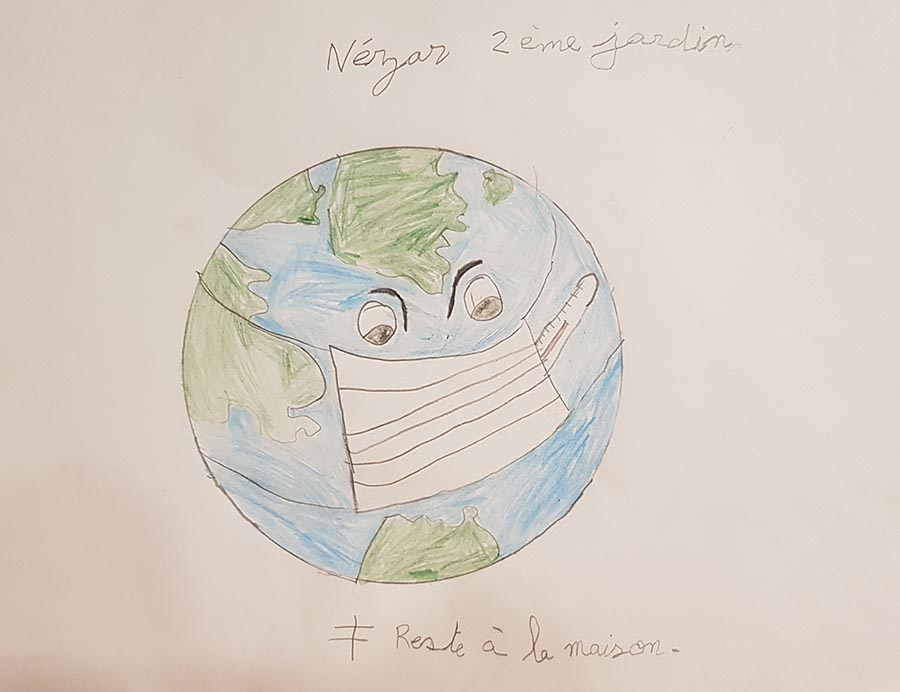 Nézar 2ème jardin
# Reste à la maison.